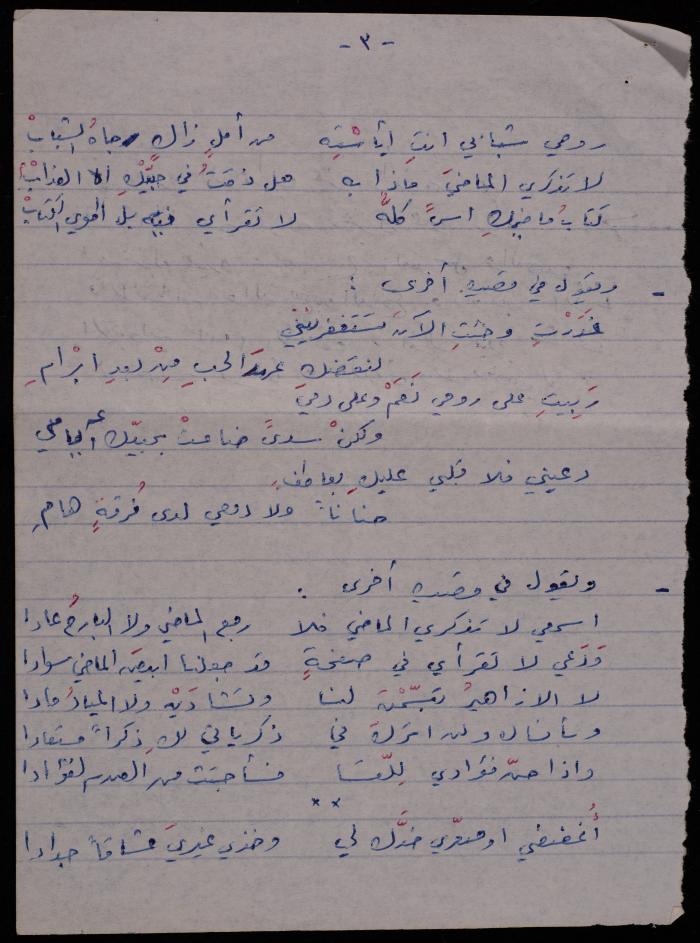 - ٣ -
روحي شبابي انتِ أيأسْتِهِ من أملٍ زال وجاهُ الشبابْ
لا تذكري الماضيَ ماذا به هل ذقتُ في حبيّكِ الا العذابْ
كتابُ ماضيكِ اسىً كلهُ لا تقرأي فيه بل اطوي الكتابْ
- ويقول في قصيدة أخرى :
غَدَرْتِ وجئتِ الآنَ تستغفرينني
لنقضك عهدَ الحب مِنْ بعدِ ابْرامِ
رَبيتِ على روحي نَعَمْ وعلى دمي
ولكنْ سدىً ضاعتْ بحبيّك أعوامي
دعيني فلا قلبي عليكِ بعاطفٍ
حناناً ولا دمعي لدى فُرقةٍ هامِ
- ويقول في قصيدة أخرى :
اسمعي لا تذكري الماضي فلا رجع الماضي ولا البارحُ عادا
ودَعي لا تقرأي في صفحةٍ قد جعلنا ابيضَ الماضي سوادا
لا الازاهيرُ تبسّمْنَ لنا وتشادَيْنَ ولا الميادُ مادا
وسأنساك ولن اتركَ في ذكرياتي لكِ ذكراً مستعادا
واذا حنّ فؤادي لِلّقا فسأجتث من الصدر الفؤادا
* *
أُغمضي او صعّري خدَّك لي وخذي غيريَ عشاقاً جدادا